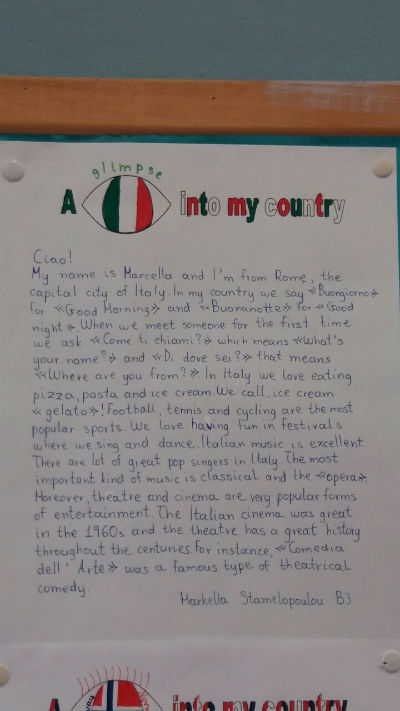 glimpse
A into my country
Ciao!
My name is Marcella and I'm from Rome, the
capital city of Italy. In my country we say «Buongiorno»
for «Good Morning» and «Buonanotte» for «Good
night». When we meet someone for the first time
we ask «Come ti chiami?» which means «What's
your name?» and «Di dove sei?» that means
«Where are you from?» In Italy we love eating
pizza, pasta and ice cream. We call ice cream
«gelato»! Football, tennis and cycling are the most
popular sports. We love having fun in festivals
where we sing and dance. Italian music is excellent.
There are lot of great pop singers in Italy. The most
important kind of music is classical and the «opera».
Moreover, theatre and cinema are very popular forms
of entertainment. The Italian cinema was great
in the 1960s and the theatre has a great history
throughout the centuries. For instance, «Comedia
dell' Arte» was a famous type of theatrical
comedy.
Markella Stamelopoulou B3
A into my country